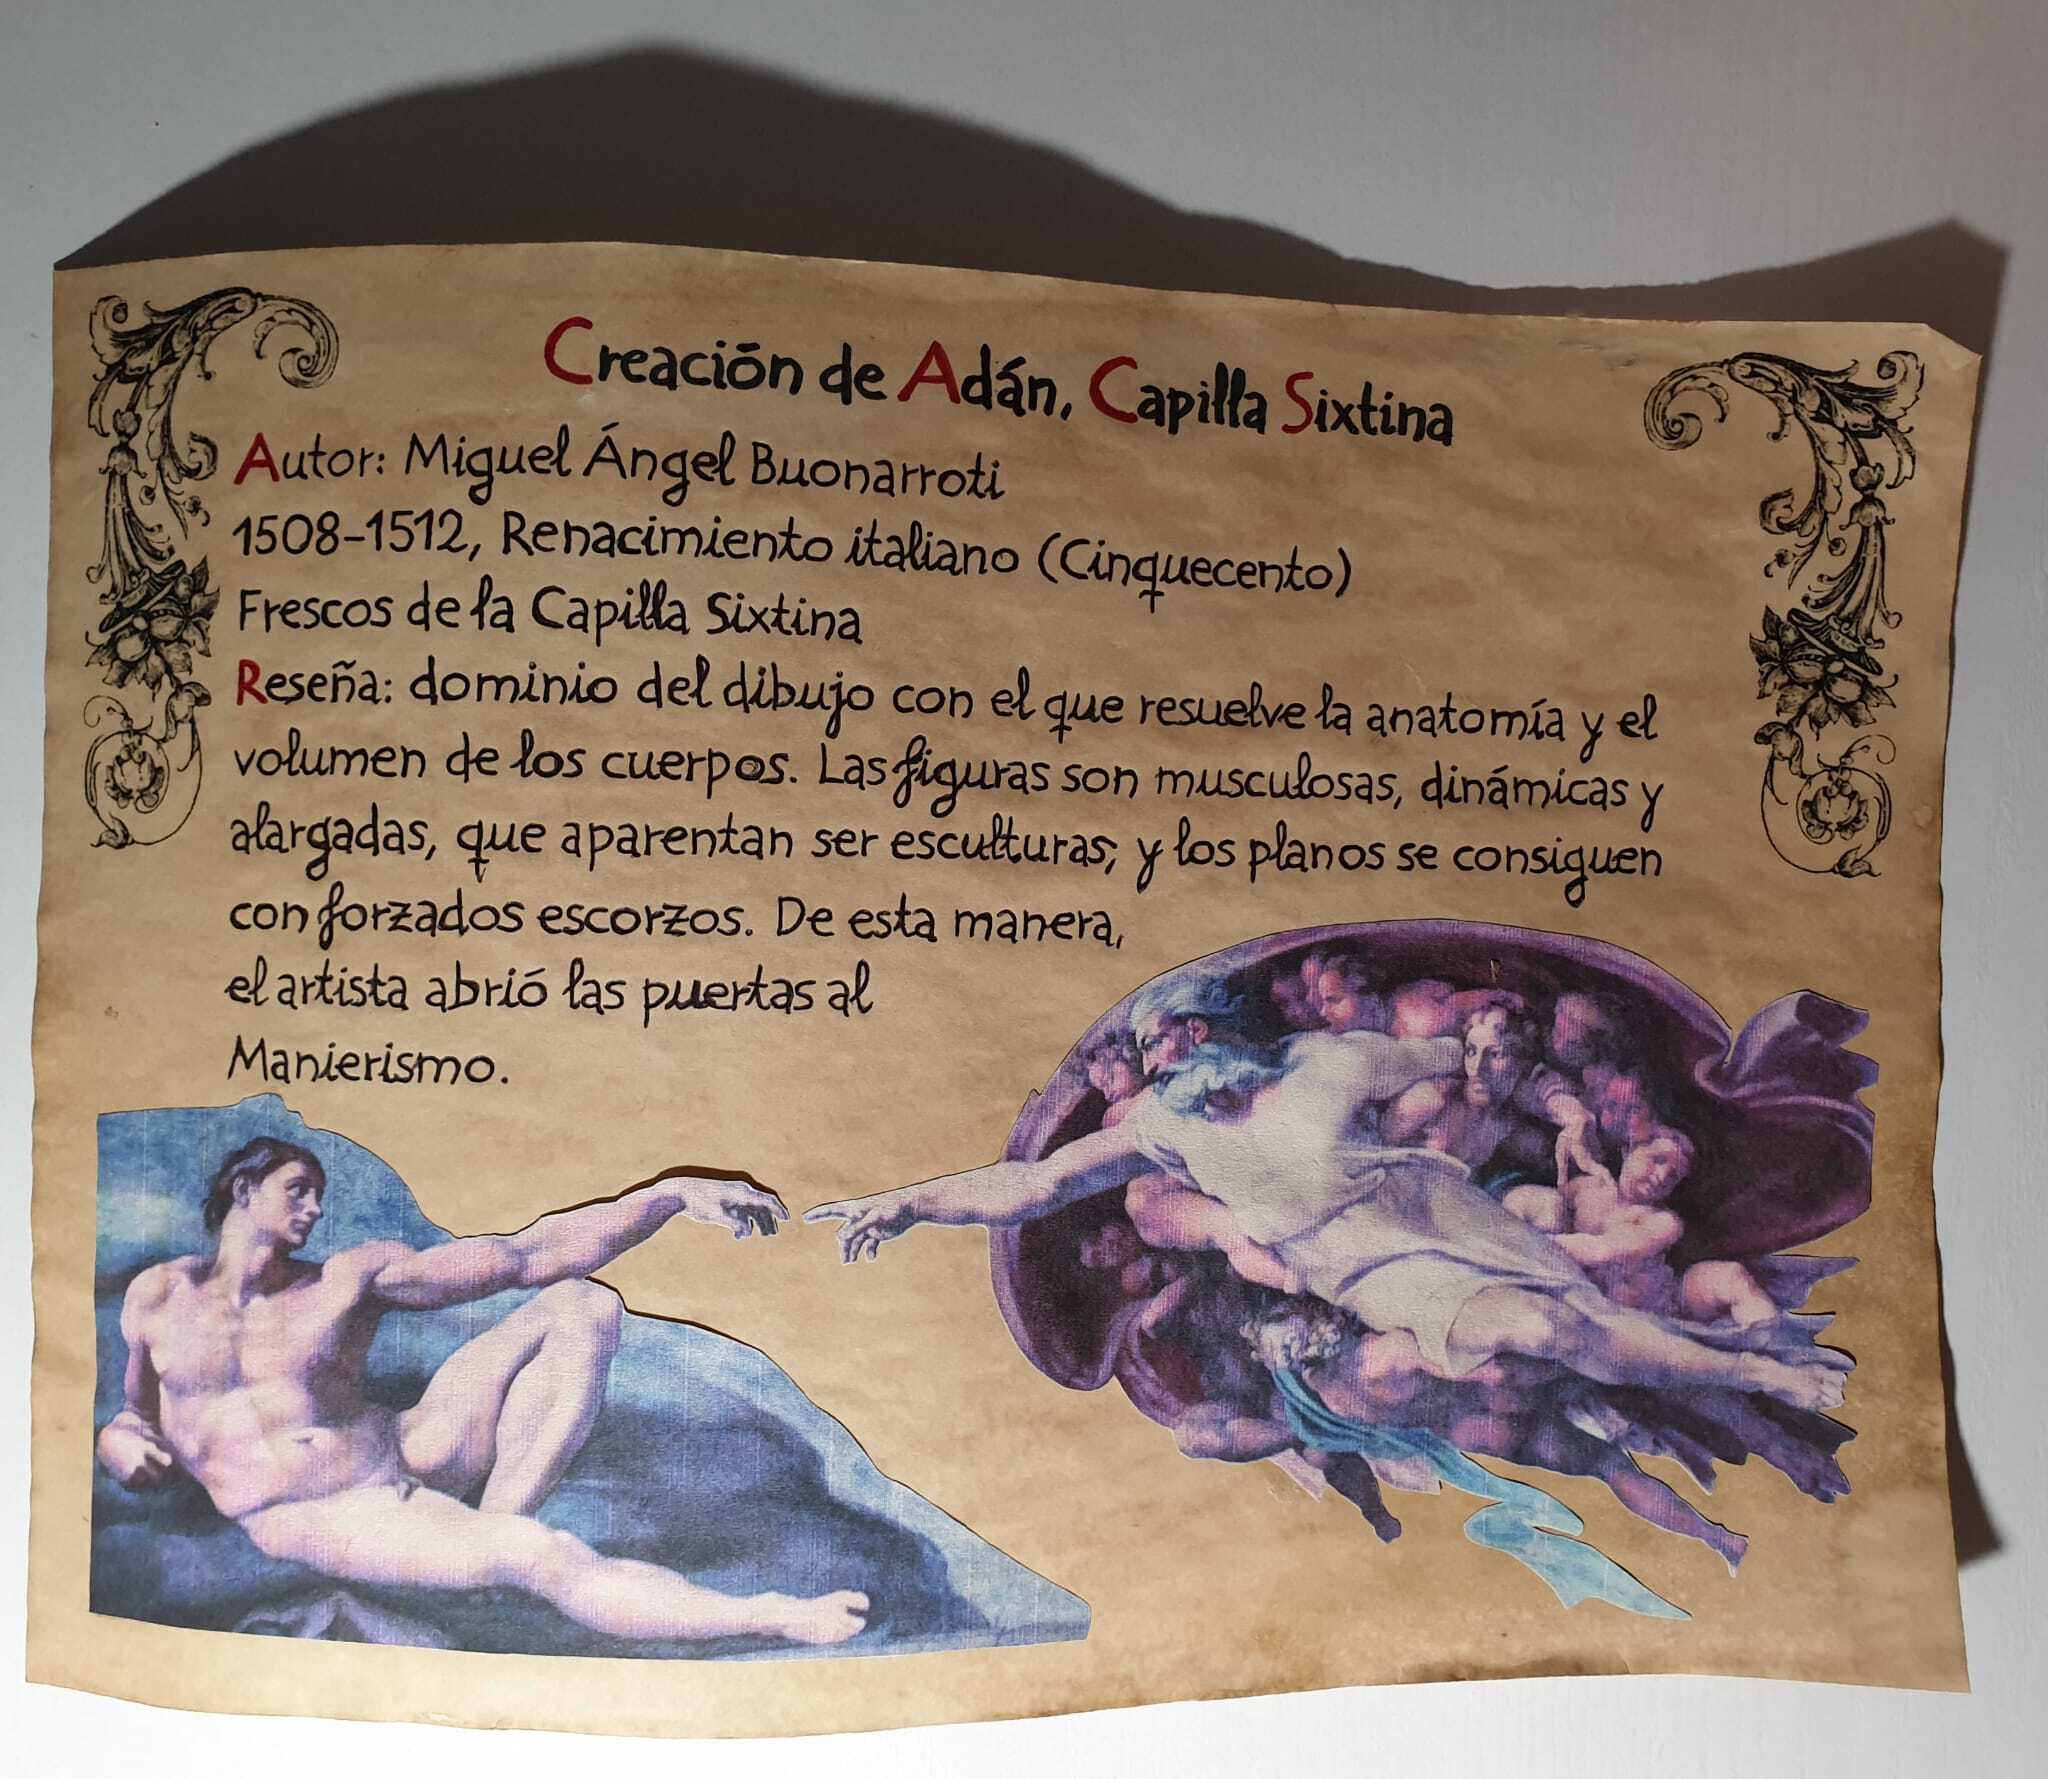 Creación de Adán, Capilla Sixtina
Autor: Miguel Ángel Buonarroti
1508-1512, Renacimiento italiano (Cinquecento)
Frescos de la Capilla Sixtina
Reseña: dominio del dibujo con el que resuelve la anatomía y el
volumen de los cuerpos. Las figuras son musculosas, dinámicas y
alargadas, que aparentan ser esculturas, y los planos se consiguen
con forzados escorzos. De esta manera,
el artista abrió las puertas al
Manierismo.